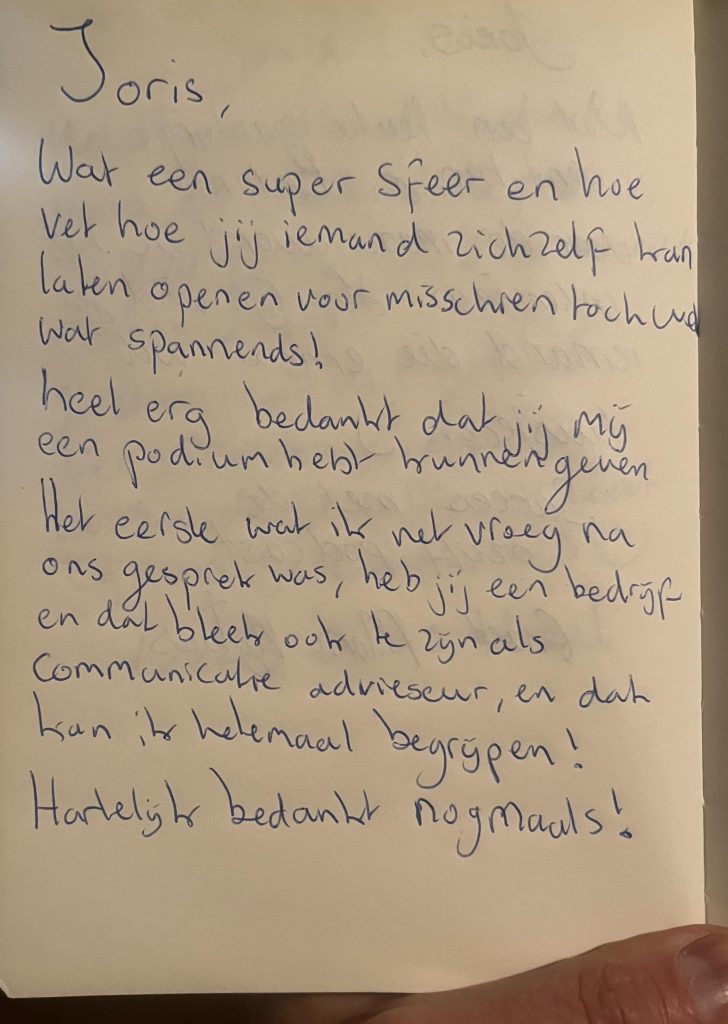 Joris,
Wat een super sfeer en hoe
vet hoe jij iemand zichzelf kan
laten openen voor misschien toch wel
wat spannends!
heel erg bedankt dat jij mij
een podium hebt kunnen geven
Het eerste wat ik net vroeg na
ons gesprek was, heb jij een bedrijf
en dat bleek ook te zijn als
communicatie advieseur, en dat
kan ik helemaal begrijpen!
Hartelijk bedankt nogmaals!